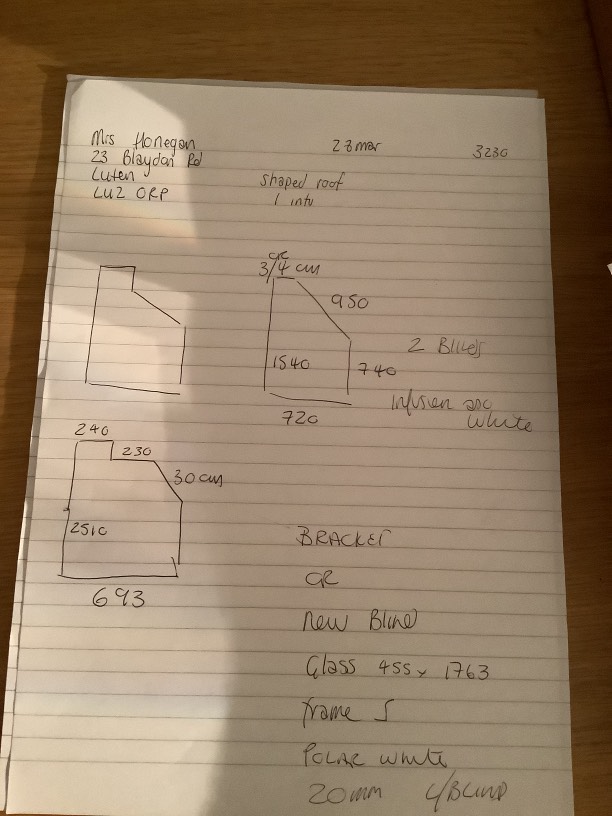 Mrs Honegan
23 Blaydon Rd
Luten
LU2 0RP
28 mar
3230
Shaped roof
1 into
3/4 cm
950
1540
740
720
2 Blinds
Infusion asc
White
240
230
30 cm
2510
693
BRACKET
OR
New Blind
Glass 455 x 1763
frame 5
POLAR White
20mm C/BLIND